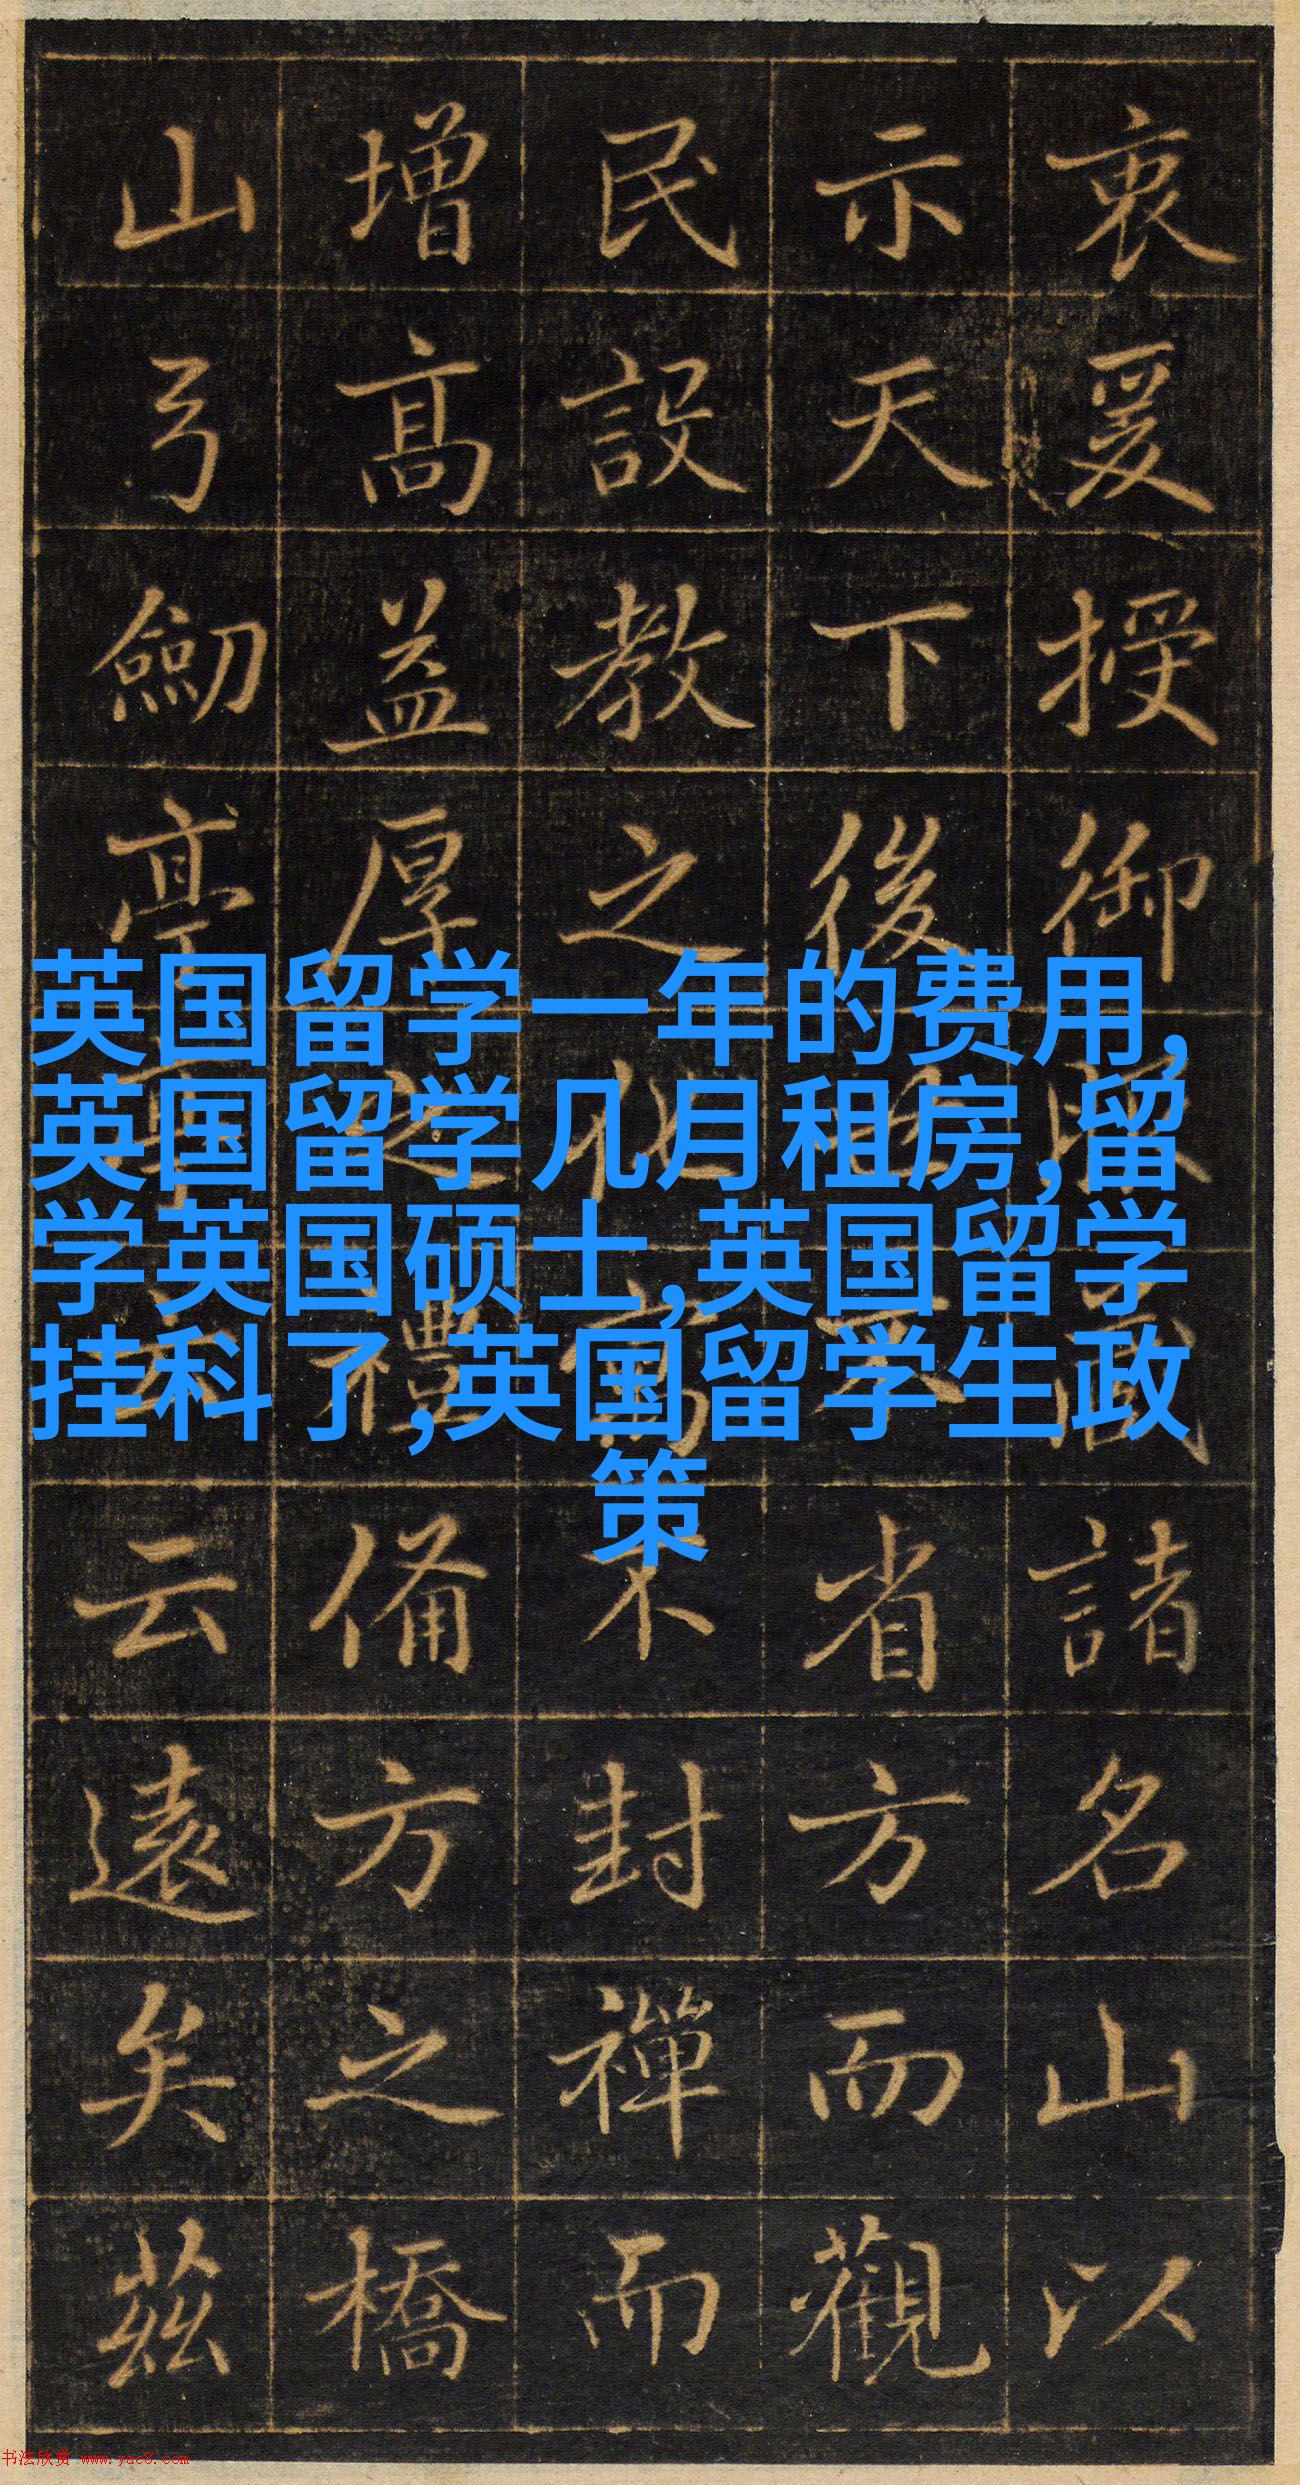 衷爰授御諸名山以
示天下後省方而觀
民設教之化不封禪而
增高益厚之禮備方之橋
山弓劒亭云遠矣茲
英国留学一年的费用,
英国留学几月租房,留
学英国硕士,英国留学
挂科了,英国留学生政
策
书法欣赏 www.yac8.com